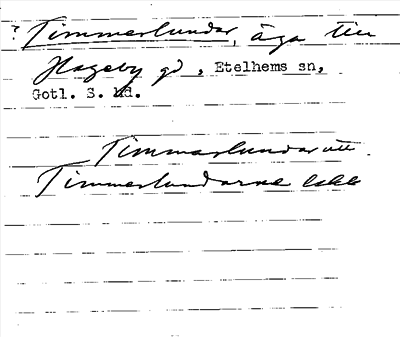 ? Timmerlundar, äga till
Hageby gd, Etelhems sn,
Gotl. S. hd.
Timmerlundar
Timmerlundarne